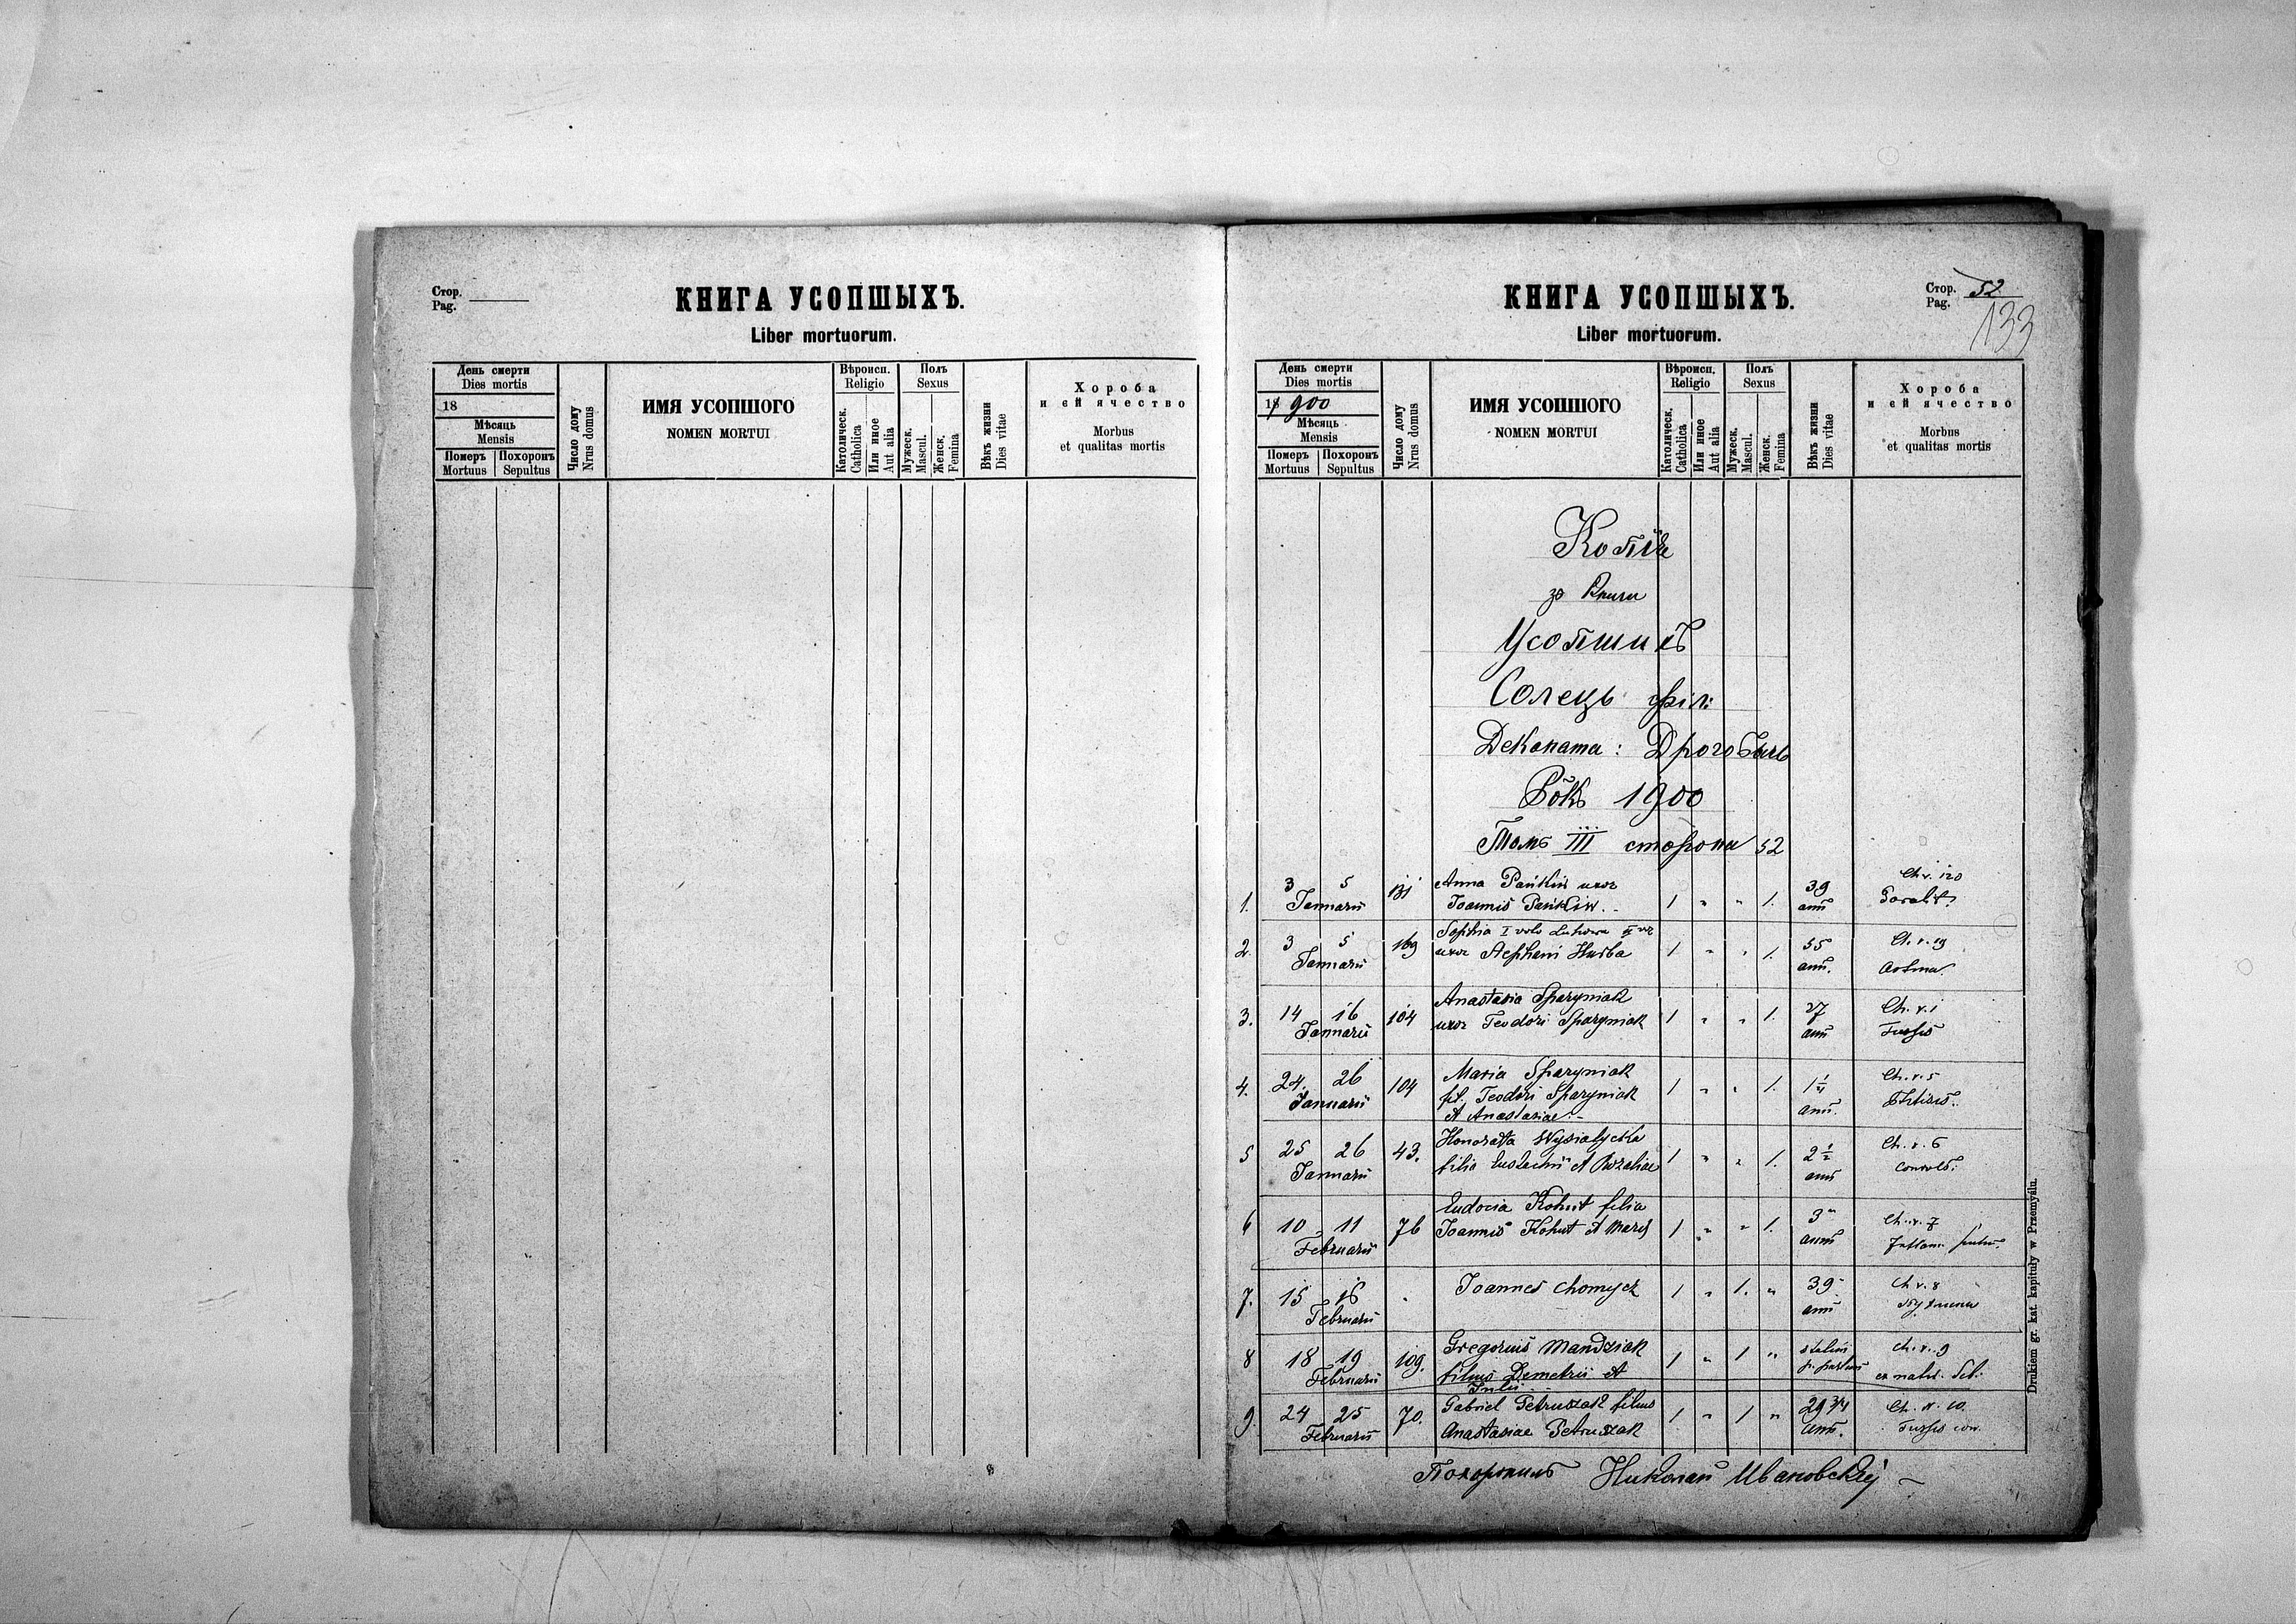 Стор.
Pag.
КНИГА УСОПШЫХЪ.
Liber mortuorum.
День смерти
Dies mortis
18
Мѣсяць
Mensis
Померъ
Mortuus
Похоронъ
Sepultus
Число дому
Nrus domus
ИМЯ УСОПШОГО
NOMEN MORTUI
Вѣроисп.
Religio
Католическ.
Catholica
Или иное
Aut alia
Полъ
Sexus
Мужеск.
Mascul.
Женск.
Femina
Вѣкъ жизни
Dies vitae
Хороба
и єй ячество
Morbus
et qualitas mortis
Стор. 52
Pag.
133
КНИГА УСОПШЫХЪ.
Liber mortuorum.
День смерти
Dies mortis
1900
Мѣсяць
Mensis
Померъ
Mortuus
Похоронъ
Sepultus
Число дому
Nrus domus
ИМЯ УСОПШОГО
NOMEN MORTUI
Вѣроисп.
Religio
Католическ.
Catholica
Или иное
Aut alia
Полъ
Sexus
Мужеск.
Mascul.
Женск.
Femina
Вѣкъ жизни
Dies vitae
Хороба
и єй ячество
Morbus
et qualitas mortis
Копія
зъ Книги
Усопшихъ
Солець філ:
Деканата: Дрогобычъ
Рôкъ 1900
Томъ III сторона 52
1. 3 5 Januarii 131 Anna Pańkiw uxor
Joannis Pańkiw. 1 " " 1. 39 anni
2. 3 5 Januarii 169 Sophia I voto
uxor Stephani Hurba 1 " " 1. 55 anni. Ch. v. 19
3. 14 16 Januarii 104 Anastasia Sparyniak
uxor Teodori Sparyniak 1 " " 1. 27 anni Ch. v. 1 Tussis
4. 24. 26 Januarii 104 Maria Sparyniak
fil. Teodori Sparyniak
et Anastasiae 1 " " 1. 1 1/4 anni. Ch. v. 5
5 25 26 Januarii 43. Honorata Wysialycka
filia Eustachii et Rozaliae 1 " " 1. 2 1/2 anni Ch. v. 6 convuls:
6 10 11 Februarii 76 Eudocia Kohut filia
Joannis Kohut et Mariae 1 " " 1. 3 anni Ch. v. 7
7. 15 16 Februarii Joannes Chomycz 1 " 1. " 39 anni Ch. v. 8
8 18 19 Februarii 109. Gregorius Mandziak
filius Demetrii et
Julii 1 " 1 " Ch. v. 9 ex nativ. deb:
9. 24 25 Februarii 70. Gabriel Petruszak filius
Anastasiae Petruszak 1 " 1 " 29 3/4 anni. Ch. v. 10. Tussis con.
Похоронилъ Николай Ивановскій
Drukiem gr. kat. kapituły w Przemyślu.